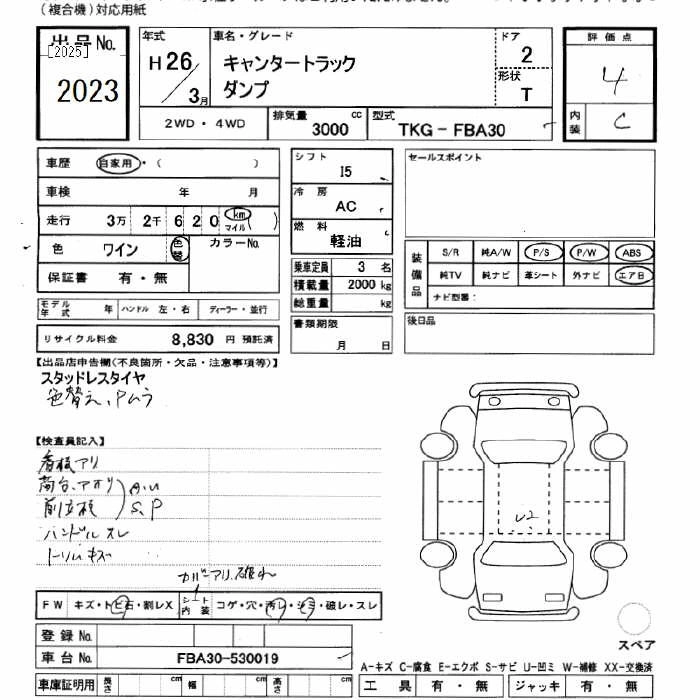 (複合機)対応用紙
出品No.
[2025]
2023
年式
H26/3月
車名・グレード
キャンタートラック
ダンプ
ドア
2
形状
T
評価点
4
内装
C
2WD・4WD
排気量 3000 cc
型式 TKG-FBA30
車歴 自家用・( )
車検 年 月
走行 3万 2千 6 2 0 km マイル ( )
色 ワイン 色替 カラーNo.
保証書 有・無
モデル年式 年 ハンドル 左・右 ディーラー・並行
リサイクル料金 8,830 円 預託済
シフト
I5
冷房
AC
燃料
軽油
乗車定員 3 名
積載量 2000 kg
総重量 kg
書類期限
月 日
セールスポイント
装備品
S/R 純A/W P/S P/W ABS
純TV 純ナビ 革シート 外ナビ エアB
ナビ型番:
後日品
【出品店申告欄(不良箇所・欠品・注意事項等)】
スタッドレスタイヤ
色替え、Pムラ
【検査員記入】
看板アリ
荷台、アオリ
前立板
A・U
S、P
ハンドルスレ
トリムキズ
カバーアリ、破れ
U2
FW キズ・トビ石・割レX シート内装 コゲ・穴・汚レ・シミ・破レ・スレ
登録No.
車台No. FBA30-530019
車庫証明用 長さ cm 幅 cm 高さ cm
スペア
A-キズ C-腐食 E-エクボ S-サビ U-凹ミ W-補修 XX-交換済
工具 有・無 ジャッキ 有・無